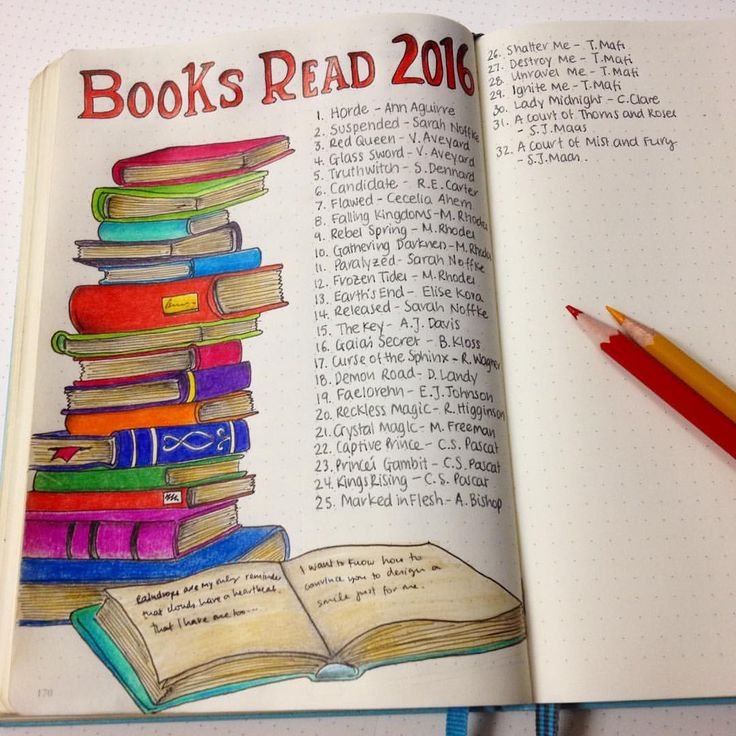 BOOKS READ 2016
1. Horde - Ann Aguirre
2. Suspended - Sarah Noffke
3. Red Queen - V. Aveyard
4. Glass Sword - V. Aveyard
5. Truthwitch - S. Dennard
6. Candidate - R.E. Carter
7. Flawed - Cecelia Ahern
8. Falling Kingdoms - M. Rhodes
9. Rebel Spring - M. Rhodes
10. Gathering Darkness - M. Rhodes
11. Paralyzed - Sarah Noffke
12. Frozen Tides - M. Rhodes
13. Earth's End - Elise Kova
14. Released - Sarah Noffke
15. The Key - A.J. Davis
16. Gaia's Secret - B. Kloss
17. Curse of the Sphinx - R. Wagner
18. Demon Road - D. Landy
19. Faelorehn - E.J. Johnson
20. Reckless Magic - R. Higginson
21. Crystal Magic - M. Freeman
22. Captive Prince - C.S. Pascat
23. Prince's Gambit - C.S. Pascat
24. Kings Rising - C.S. Pascat
25. Marked in Flesh - A. Bishop
Raindrops are my only reminder
that clouds have a heartbeat.
That I have one too...
I want to know how to
convince you to design a
smile just for me.
170
26. Shatter Me - T. Mafi
27. Destroy Me - T. Mafi
28. Unravel Me - T. Mafi
29. Ignite Me - T. Mafi
30. Lady Midnight - C. Clare
31. A Court of Thorns and Roses
- S.J. Maas
32. A Court of Mist and Fury
- S.J. Maas.